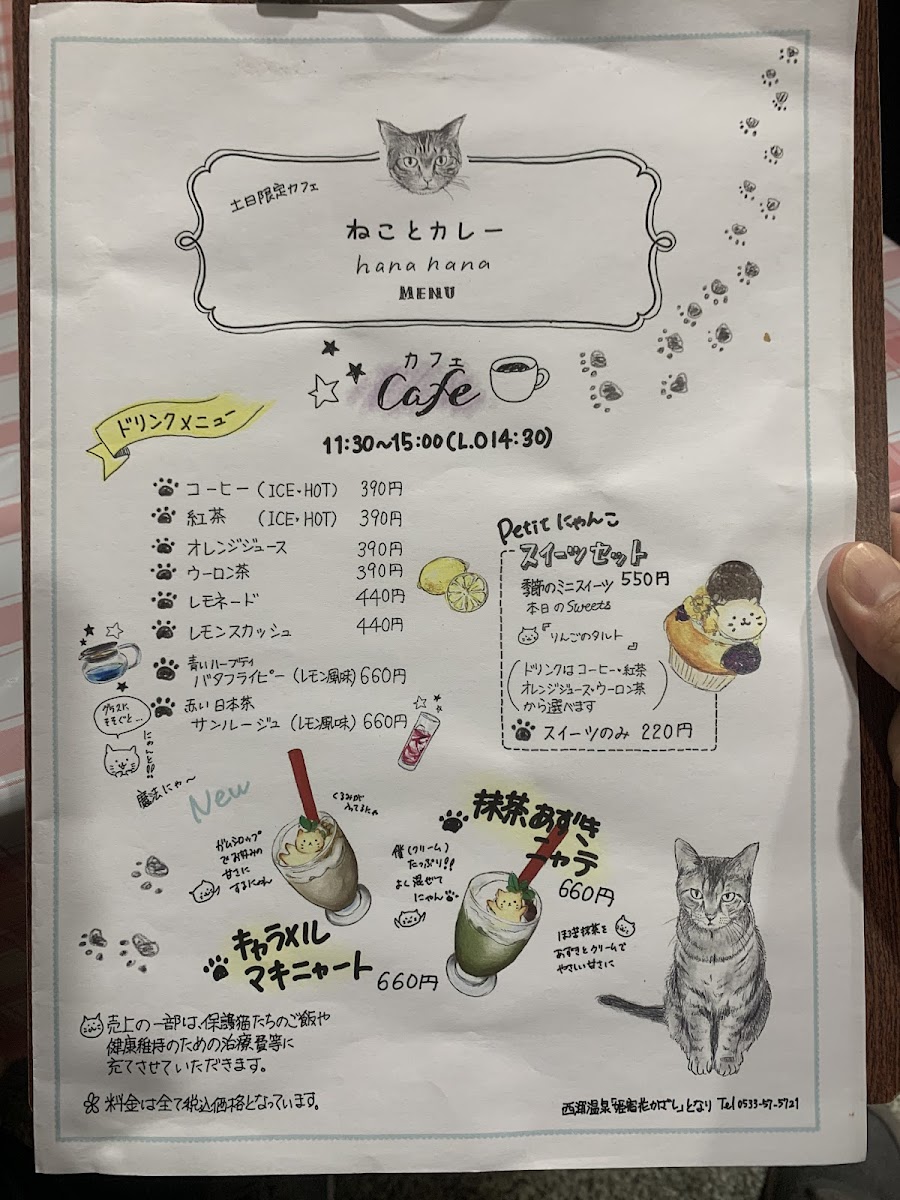 土日限定カフェ
ねことカレー
hana hana
MENU
カフェ
Cafe
ドリンクメニュー
11:30~15:00(L.O14:30)
コーヒー (ICE・HOT) 390円
紅茶 (ICE・HOT) 390円
オレンジジュース 390円
ウーロン茶 390円
レモネード 440円
レモンスカッシュ 440円
青いハーブティ
バタフライピー(レモン風味) 660円
赤い日本茶
サンルージュ(レモン風味) 660円
グラスに
そそぐと…
にゃんと!!
魔法にゃ〜
Petit にゃんこ
スイーツセット
季節のミニスイーツ 550円
本日のSweets
『りんごのタルト』
(ドリンクはコーヒー・紅茶
オレンジジュース・ウーロン茶
から選べます)
スイーツのみ 220円
New
くるみが
入ってるにゃ
ガムシロップ
でお好みの
甘さに
するにゃん
キャラメル
マキニャート 660円
抹茶あずき
ニャテ
660円
(クリーム)
たっぷり!!
よく混ぜて
にゃん
ほろ苦抹茶を
あずきとクリームで
やさしい甘さに
売上の一部は、保護猫たちのご飯や
健康維持のための治療費等に
充てさせていただきます。
料金は全て税込価格となっています。
西浦温泉「姫宿花かざし」となり Tel 0533-57-5721